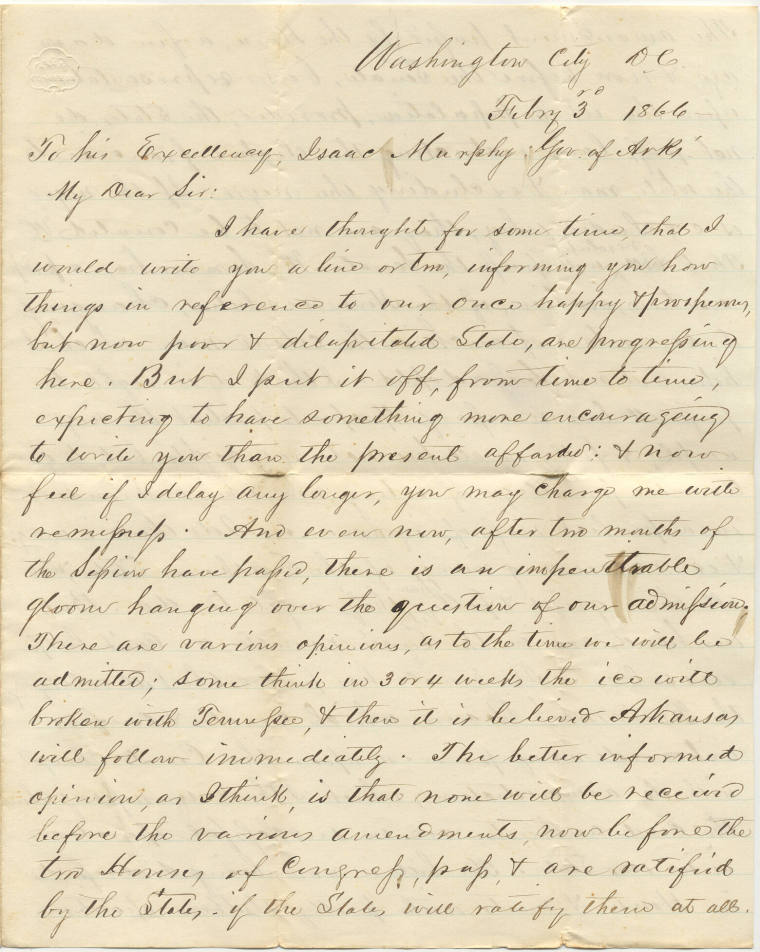 Washington City D.C.
Febry 3rd 1866—
To his Excellency, Isaac Murphy. Gov. of Arks
My Dear Sir:
I have thought for some time, that I
would write you a line or two, informing you how
things in reference to our once happy & prosperous,
but now poor & dilapitated State, are progressing
here. But I put it off, from time to time,
expecting to have something more encourageing
to write you than the present afforded: & now
feel if I delay any longer, you may charge me with
remissness. And even now, after two months of
the Session have passed, there is an impenetrable
gloom hanging over the question of our admission.
There are various opinions, as to the time we will be
admitted; some think in 3 or 4 weeks the ice will
broken with Tennessee, & then it is believed Arkansas
will follow immediately. The better informed
opinion, as I think, is that none will be received
before the various amendments, now before the
two Houses of Congress, pass, & are ratified
by the States. if the States will ratify them at all.